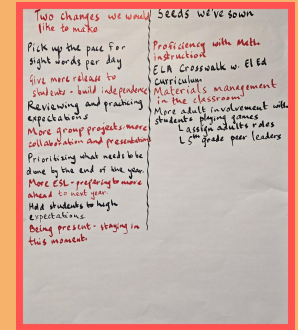 Two changes we would
like to make
Pick up the pace for
sight words per day
Give more release to
students - build independence
Reviewing and practicing
expectations
More group projects, more
collaboration and presentations
Prioritizing what needs to be
done by the end of the year.
More ESL - prefering to move
ahead to next year.
Hold students to high
expectations.
Being present - staying in
this moment.
Seeds we've sown
Proficiency with Math
instruction
ELA Crosswalk w. El Ed
Curriculum
Materials management
in the classroom
More adult involvement with
students playing games
assign adults roles
5th grade peer leaders